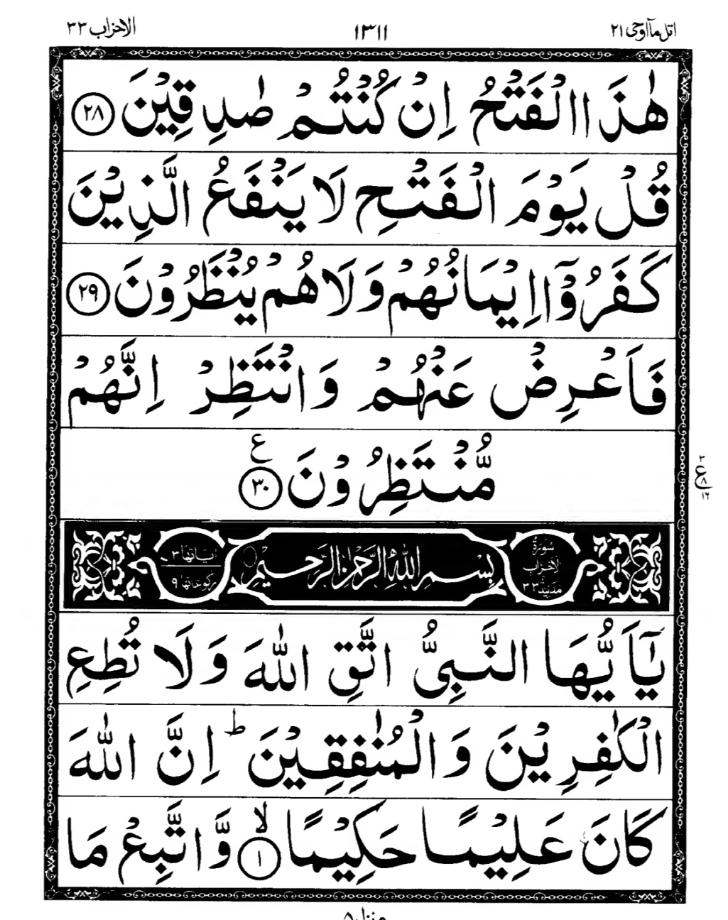 اتل مآاوحی ۲۱
۱۳۱۱
الاحزاب ۳۳
هٰذَا الْفَتْحُ اِنْ كُنْتُمْ صٰدِقِيْنَ ۲۸
قُلْ يَوْمَ الْفَتْحِ لَا يَنْفَعُ الَّذِيْنَ
كَفَرُوْٓا اِيْمَانُهُمْ وَلَا هُمْ يُنْظَرُوْنَ ۲۹
فَاَعْرِضْ عَنْهُمْ وَانْتَظِرْ اِنَّهُمْ
مُّنْتَظِرُوْنَ ۳۰ ع
سُورَةُ الاحزاب مدنية ۳۳
بِسْمِ اللهِ الرَّحْمٰنِ الرَّحِيْمِ
يٰٓاَيُّهَا النَّبِىُّ اتَّقِ اللهَ وَلَا تُطِعِ
الْكٰفِرِيْنَ وَالْمُنٰفِقِيْنَ ط اِنَّ اللهَ
كَانَ عَلِيْمًا حَكِيْمًا ۱ لا وَّاتَّبِعْ مَا
منزل ۵